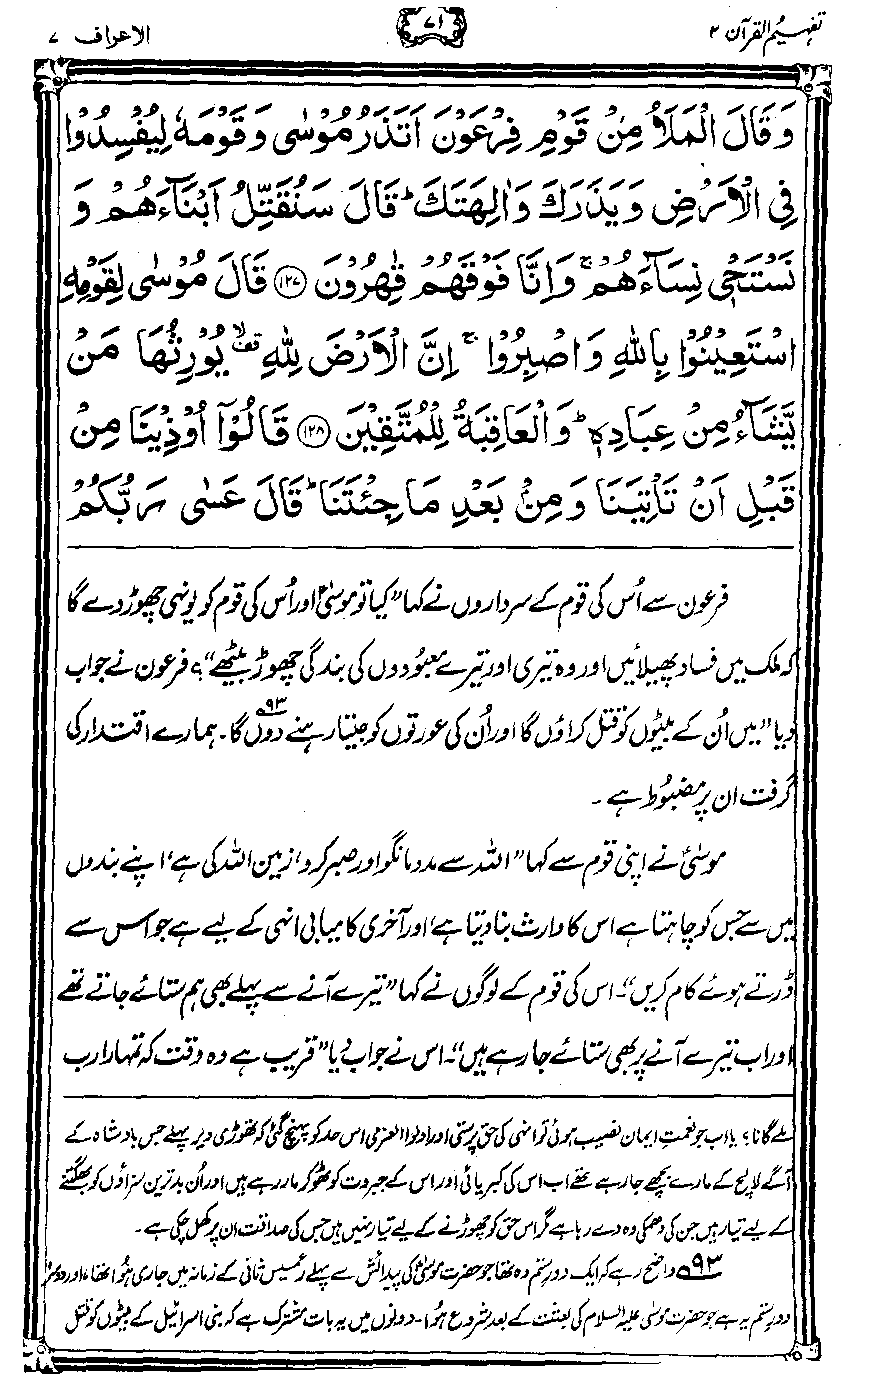 تفہیم القرآن ۲
۷۱
الاعراف ۷
وَقَالَ الْمَلَاُ مِنْ قَوْمِ فِرْعَوْنَ اَتَذَرُ مُوْسٰى وَقَوْمَهٗ لِيُفْسِدُوْا
فِى الْاَرْضِ وَيَذَرَكَ وَاٰلِهَتَكَ ؕ قَالَ سَنُقَتِّلُ اَبْنَآءَهُمْ وَ
نَسْتَحْىٖ نِسَآءَهُمْ ۚ وَاِنَّا فَوْقَهُمْ قٰهِرُوْنَ ﴿۱۲۷﴾ قَالَ مُوْسٰى لِقَوْمِهِ
اسْتَعِيْنُوْا بِاللّٰهِ وَاصْبِرُوْا ۚ اِنَّ الْاَرْضَ لِلّٰهِ ۙ۫ يُوْرِثُهَا مَنْ
يَّشَآءُ مِنْ عِبَادِهٖ ؕ وَالْعَاقِبَةُ لِلْمُتَّقِيْنَ ﴿۱۲۸﴾ قَالُوْۤا اُوْذِيْنَا مِنْ
قَبْلِ اَنْ تَاْتِيَنَا وَمِنْۢ بَعْدِ مَا جِئْتَنَا ؕ قَالَ عَسٰى رَبُّكُمْ
فرعون سے اُس کی قوم کے سرداروں نے کہا ”کیا تو موسیٰؑ اور اُس کی قوم کو یونہی چھوڑ دے گا
کہ ملک میں فساد پھیلائیں اور وہ تیری اور تیرے معبودوں کی بندگی چھوڑ بیٹھے“؟ فرعون نے جواب
دیا ”میں اُن کے بیٹوں کو قتل کراؤں گا اور اُن کی عورتوں کو جیتا رہنے دوں گا۔۹۳ ہمارے اقتدار کی
گرفت ان پر مضبوط ہے۔
موسیٰؑ نے اپنی قوم سے کہا ”اللہ سے مدد مانگو اور صبر کرو، زمین اللہ کی ہے، اپنے بندوں
میں سے جس کو چاہتا ہے اس کا وارث بنا دیتا ہے، اور آخری کامیابی انہی کے لیے ہے جو اس سے
ڈرتے ہوئے کام کریں“۔ اس کی قوم کے لوگوں نے کہا ”تیرے آنے سے پہلے بھی ہم ستائے جاتے تھے
اور اب تیرے آنے پر بھی ستائے جا رہے ہیں“۔ اس نے جواب دیا ”قریب ہے وہ وقت کہ تمہارا رب
ملے گا نا؟ یا اب جو نعمتِ ایمان نصیب ہوئی تو انہی کی حق پرستی اور اولوا العزمی اس حد کو پہنچ گئی کہ تھوڑی دیر پہلے جس بادشاہ کے
آگے لالچ کے مارے بچھے جا رہے تھے اب اس کی کبریائی اور اس کے جبروت کو ٹھوکر مار رہے ہیں اور اُن بدترین سزاؤں کو بھگتنے
کے لیے تیار ہیں جن کی دھمکی وہ دے رہا ہے مگر اس حق کو چھوڑنے کے لیے تیار نہیں ہیں جس کی صداقت ان پر کھل چکی ہے۔
۹۳ واضح رہے کہ ایک دورِ ستم وہ تھا جو حضرت موسیٰؑ کی پیدائش سے پہلے رعمیس ثانی کے زمانہ میں جاری ہوا تھا، اور دوسرا
دورِ ستم یہ ہے جو حضرت موسیٰ علیہ السلام کی بعثت کے بعد شروع ہوا۔ دونوں میں یہ بات مشترک ہے کہ بنی اسرائیل کے بیٹوں کو قتل